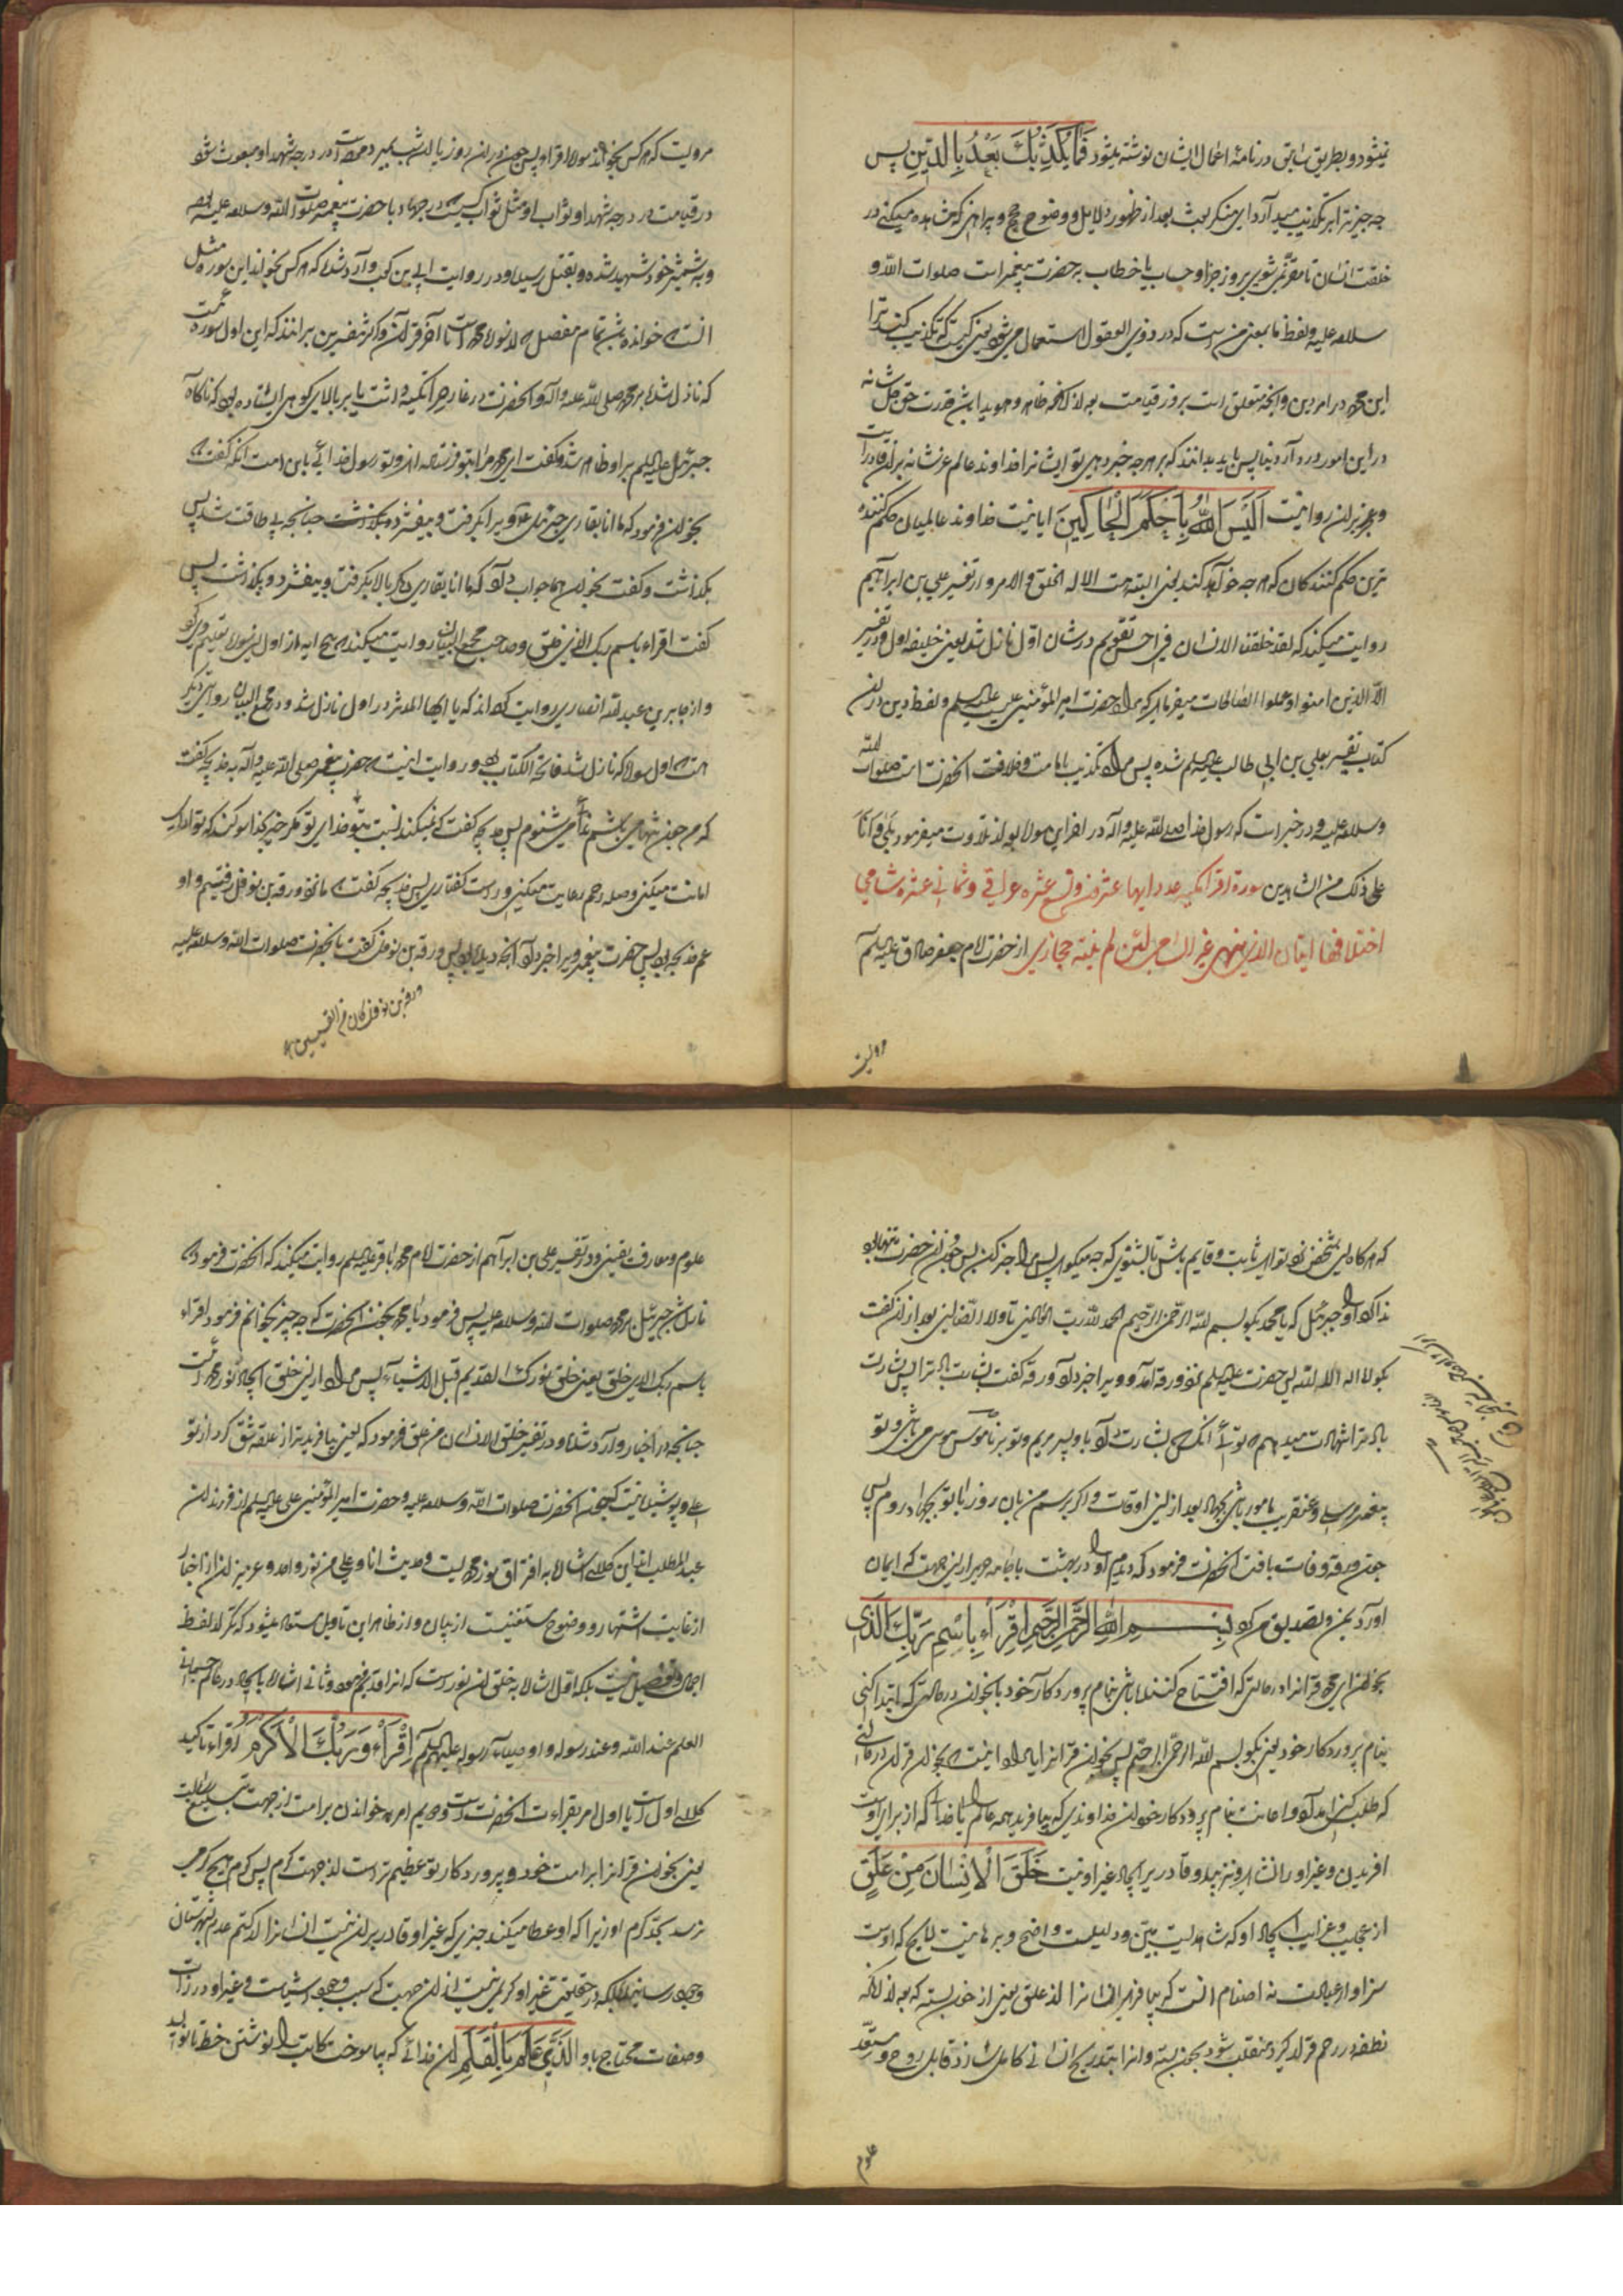 نمیشود و بطریق سابق در نامهٔ اعمال ایشان نوشته میشود فَمَا يُكَذِّبُكَ بَعْدُ بِالدِّينِ پس
چه چیز ترا بر تکذیب میدارد ای منکر بعث بعد از ظهور دلایل و وضوح حجج و براهین که مشاهده میکنی در
خلقت انسان تا مقر نمی شوی بروز جزا و حساب یا خطاب به حضرت پیغمبر است صلوات الله و
سلامه علیه و لفظ ما بمعنی من است که در ذوی العقول استعمال می شود یعنی کیست که تکذیب کند ترا
این محمد در امر دین و آنچه متعلق است بروز قیامت بعد از آنکه ظاهر و هویدا شد قدرت حق جل شانه
در این امور در دار دنیا پس باید بدانند که بر هر چه خبر دهی تو ایشانرا خداوند عالم عز شانه بر آن قادر است
و عجز بر آن روا نیست اَلَيْسَ اللهُ بِاَحْكَمِ الْحَاكِمِينَ ایا نیست خداوند عالمیان حکم کننده
ترین حکم کنندکان که هر چه خواهد کند یعنی البته هست الا له الخلق و الامر و در تفسیر علی بن ابراهیم
روایت میکند که لقد خلقنا الانسان فی احسن تقویم در شان اول نازل شد یعنی خلیفه اول و در تفسیر
الا الذین امنوا و عملوا الصالحات میفرماید که مراد حضرت امیر المؤمنین علیه السلم و لفظ دین در این
کتاب تفسیر بعلی بن ابی طالب علیه السلم شده پس مراد تکذیب بامامت و خلافت انحضرت است صلوات الله
و سلامه علیه و در خبر است که رسول خدا صلی الله علیه و اله در اخر این سوره بعد از تلاوت میفرمود بَلٰی وَ اَنَا
علی ذلک من الشاهدین سورة اقرأ مکیه عدد ایها عشرون و تسع عشره عراقی و ثمانی عشره شامی
اختلافها ایتان الذی ینهی غیر الشامی لئن لم ینته حجازی از حضرت امام جعفر صادق علیه السلم
مرویست
مرویست که هر کس بخواند سوره اقرأ و پس در ان روز یا ان شب بمیرد در درجه شهدا و مبعوث شود
در قیامت در درجه شهدا و ثواب او مثل ثواب کسیست که در جهاد با حضرت پیغمبر صلوات الله و سلامه علیه
و به شمشیر خود شهید شده و بقتل رسیده و در روایت ابی بن کعب وارد شده که هر کس بخواند این سوره مثل
انست که خوانده باشد تمام مفصل که از سوره محمد است تا اخر قران و اکثر مفسرین بر انند که این اول سوره ایست
که نازل شده بر محمد صلی الله علیه و اله و انحضرت در غار حرا تکیه داشت یا بر بالای کوهی ایستاده بود که ناکاه
جبرئیل علیه السلم بر او ظاهر شد و گفت ای محمد مرا بتو فرستاده اند و تو رسول خدائی باین امت انکه کفت که
بخوان فرمود که ما انا بقاری جبرئیل او ویرا بکرفت و بیفشرد و بکذاشت چنانچه بی طاقت شد پس
بکذاشت و کفت بخوان هما جواب داد که ما انا بقاری دیکر باره بکرفت و بیفشرد و بکذاشت پس
کفت اقراء باسم ربک الذی خلق و صاحب مجمع البیان روایت میکند که پنج ایه از اول این سوره تعلیم وی کرد
و از جابر بن عبد الله انصاری روایت کرده اند که یا ایها المدثر در اول نازل شد و در مجمع البیان روایتی دیکر
هست که اول سوره که نازل شد فاتحة الکتاب بود و روایت انیست که حضرت پیغمبر صلی الله علیه و اله به خدیجه کفت
که من چون تنها می باشم ندائی می شنوم پس خدیجه کفت که نمیکند نسبت بتو خدای تو مکر خیر بخدا سوکند که تو ادای
امانت میکنی و صله رحم رعایت میکنی و راست کفتاری پس خدیجه کفت که ما نزد ورقة بن نوفل رفتیم و او
عم خدیجه بود پس حضرت پیغمبر ویرا خبر داد آنچه دیده بود پس ورقة بن نوفل کفت بانحضرت صلوات الله و سلامه علیه
ورقة بن نوفل کان من القسیسین
که هر کاه این شخص نزد تو اید ثابت و قایم باش تا بشنوی که چه میکوید پس مرا خبر کن پس چون ان حضرت تنها بود
ندا کرد او را جبرئیل که یا محمد بکو بسم الله الرحمن الرحیم الحمد لله رب العالمین تا ولا الضالین بعد از ان کفت
بکو لا اله الا الله پس حضرت علیه السلم نزد ورقه آمد و ویرا خبر داد ورقه کفت بشارت باد ترا پس بشارت
باد ترا شهادت میدهم که تو انکسی که بشارت داد باو پسر مریم و تو بر ناموس موسی می باشی و تو
پیغمبر مرسلی و عنقریب مامور باشی بجهاد بعد از این اوقات و اکر برسم من بان روز با تو بجهاد روم پس
چون ورقه وفات یافت انحضرت فرمود که دیدم او را در بهشت با جامه حریر از این جهت که ایمان
اورد بمن و تصدیق من کرد بِسْمِ اللهِ الرَّحْمٰنِ الرَّحِيمِ اِقْرَأْ بِاسْمِ رَبِّكَ الَّذِی
بخوان ای محمد قرانرا در حالتی که افتتاح کننده باشی بنام پروردکار خود یا بخوان در حالتی که ابتدا کنی
بنام پروردکار خود یعنی بکو بسم الله الرحمن الرحیم پس بخوان قرانرا یا مراد اینست که بخوان قران در حالتی
که طلب کنی امداد و اعانت بنام پروردکار خود ان خداوندی که بیافرید همه عالم را یا خدائی که از برای اوست
افریدن و غیر او را نشاید و نزیبد و قادر بر ایجاد غیر او نیست خَلَقَ الْاِنْسَانَ مِنْ عَلَقٍ
از عجایب و غرایب ایجاد او که شاهدیست مبین و دلیلیست واضح و برهانیست لایح که اوست
سزاوار عبادت نه اصنام انست که بیافرید انسانرا از علق یعنی از خون بسته که بعد از انکه
نطفه در رحم قرار کیرد منقلب شود بخون بسته و انرا بتدریج انسانی کامل سازد قابل روح و مستعد
علوم
علوم و معارف یقینی و در تفسیر علی بن ابراهیم از حضرت امام محمد باقر علیه السلم روایت میکند که انحضرت فرمود که
نازل شد جبرئیل بر محمد صلوات الله و سلامه علیه پس فرمود یا محمد بخوان انحضرت که چه چیز بخوانم فرمود اقراء
باسم ربک الذی خلق یعنی خلق نورک القدیم قبل الاشیاء پس مراد از این خلق ایجاد نور محمد است
چنانچه در اخبار وارد شده و در تفسیر خلق الانسان من علق فرمود که یعنی بیافرید ترا از علقه شق کرد از تو
علی و پوشیده نیست که چون انحضرت صلوات الله و سلامه علیه و حضرت امیر المؤمنین علی علیه السلم از فرزندان
عبد المطلب اند این کلام اشاره به افتراق نور محمدیست و حدیث انا و علی من نور واحد و غیر ان از اخبار
از غایت اشتهار و وضوح مستغنیست از بیان و از ظاهر این تاویل مستفاد میشود که تکرار لفظ
اجمال و تفصیل نیست بلکه اول اشاره به خلق ان نور است که انرا قدیم فرمود و ثانی اشاره بایجاد در عالم جسمانی
العلم عند الله و عند رسوله و اوصیاء رسوله علیهم السلم اِقْرَأْ وَرَبُّكَ الْاَكْرَمُ و اقراء تاکید
کلام اول است یا اول امر بقراءت انحضرت است و دویم امر به خواندن بر امت از جهت تبلیغ رسالت
یعنی بخوان قرانرا بر امت خود و پروردکار تو عظیم تر است از جهت کرم پس کرم هیچ کریمی
نرسد بحد کرم او زیرا که او عطا میکند چیزی که غیر او قادر بر ان نیست انسانرا از کتم عدم بشهرستان
وجود رسانیده بلکه در حقیقت غیر او کریمی نیست از ان جهت که سبب وجود اشیاست و غیر او در ذات
وصفات محتاج باو الَّذِی عَلَّمَ بِالْقَلَمِ ان خدائی که بیاموخت کتابت را و نوشتن خط تا نوید